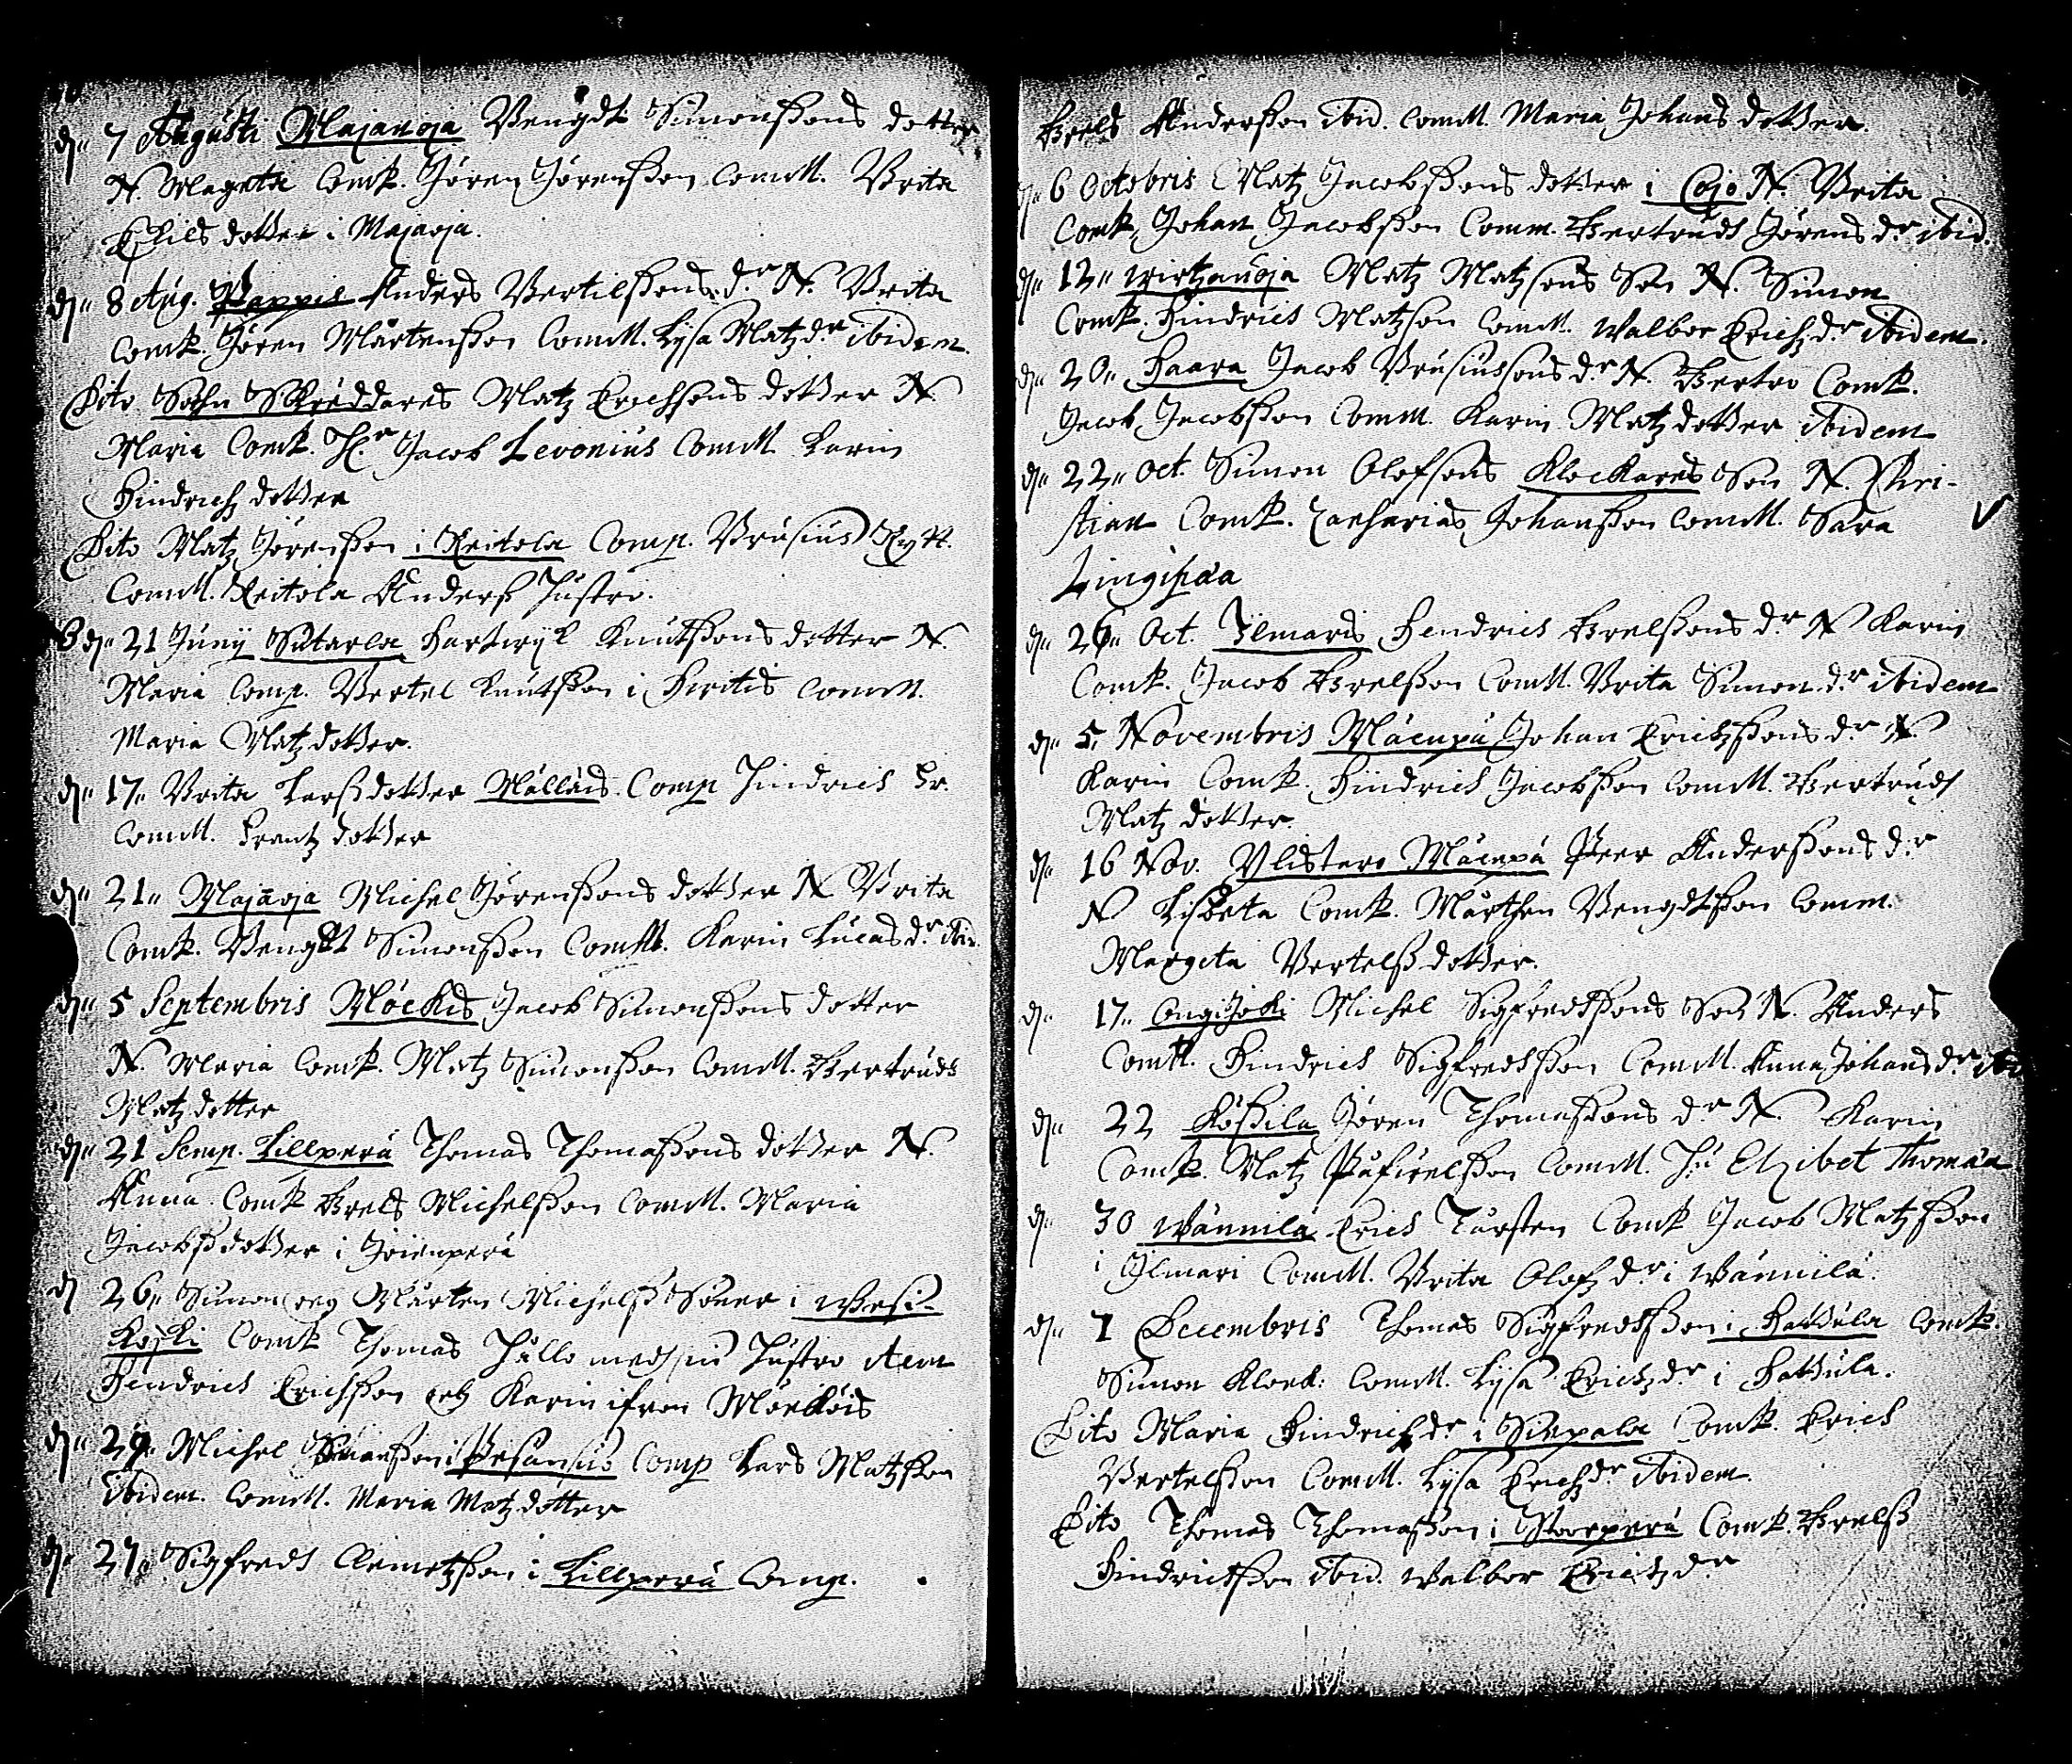 dn 7 Augusti Majanoja Bengdt Simonssons dotter
N. Magreta Comp. Jören Jörensson ComM. Brita
Eskils dotter i Majaoja.
dn 8 Aug. Pappis Anders Bertilssons dr N. Brita
Comp. Jören Mårtensson ComM. Lysa Matz dr ibidem.
Dito Sohn Skräddares Matz Erichsons dotter N.
Maria Comp. Hr Jacob Levonius ComM Karin
Hindrich dotter
Dito Matz Jörensson i Reitola Comp. Brusius Rytt.
ComM. Reitola Anderss hustro.
dn 21 Juny Sutarla Hartwyk Knutssons dotter N.
Maria Comp. Bertel Knutsson i Hiritis ComM.
Maria Matz dotter.
dn 17. Brita Larssdotter Mälläis. Comp Hindrich Fr.
ComM. Frantz dotter
dn 21. Majaoja Michel Jörenssons dotter N Brita
Comp. Bengdt Simonsson ComM. Karin Lucas dr ibid.
dn 5 Septembris Möckis Jacob Simonssons dotter
N. Maria Comp. Matz Simonsson ComM. Gertruds
Matz dotter
dn 21 Semp. Lillperä Thomas Thomassons dotter N.
Anna Comp Grels Michelsson ComM. Maria
Jacobssdotter i Joienperä
d 26. Simon och Mårten Michelss Söner i Wesi-
koski Comp Thomas Hällo med sin hustro item
Hendrich Erichsson och Karin ifron Mörköis
dn 29. Michel Simonsson i Pesänsuo Comp Lars Matzsson
ibidem. ComM. Maria Matz dotter
dn 27. Sigfredh Clemetzson i Lillperä Comp.
Grels Andersson ibid. ComM. Maria Johans dotter.
dn 6 Octobris Matz Jacobssons dotter i Cojo N. Brita
Comp. Johan Jacobsson Comm. Gertrudh Jörens dr ibid.
dn 12. Wirtzanoja Matz Matzsons Son N. Simon
Comp. Hindrich Matzson ComM. Walbor Erich dr ibidem.
dn 20. Haara Jacob Brusiussons dr N. Gertro Comp.
Jacob Jacobsson Comm. Karin Matz dotter ibidem
dn 22. Oct. Simon Olofsons Klockares Son N. Chri-
stian Comp. Zacharias Johansson ComM. Sara
Lingipaa
dn 26. Oct. Ilmaris Hendrich Grelssons dr N Karin
Comp. Jacob Grelsson ComM. Brita Simon dr ibidem
dn 5. Novembris Mäenpä Johan Erichssons dr N.
Karin Comp. Hindrich Jacobsson ComM. Gertrudh
Matz dotter.
dn 16 Nov. Ylistaro Mäenpä Peer Anderssons dr
N Lisbeta Comp. Mårthen Bengdtsson Comm.
Margeta Bertelss dotter.
dn 17. Ongijoki Michel Sigfredssons Son N. Anders
Comp. Hindrich Sigfredsson ComM. Anna Johans dr ibi
dn 22 Kössila Jören Thomassons dr N. Karin
Comp. Matz Påfwelsson ComM. Hu Elzibet Thomäa
dn 30 Wännilä Erich Tårsten Comp Jacob Matzsson
i Ilmari ComM. Brita Olofz dr i Wännilä.
dn 7 Decembris Thomas Sigfredsson i Hattula Comp.
Simon Klock: ComM. Lysa Erichz dr i Hattula.
Dito Maria Hindrich dr i Sirpala Comp. Erich
Bertelsson ComM. Lysa Erich dr ibidem
Dito Thomas Thomasson i Storperä Comp. Grelss
Hindrichsson ibid. Walbor Erichz dr